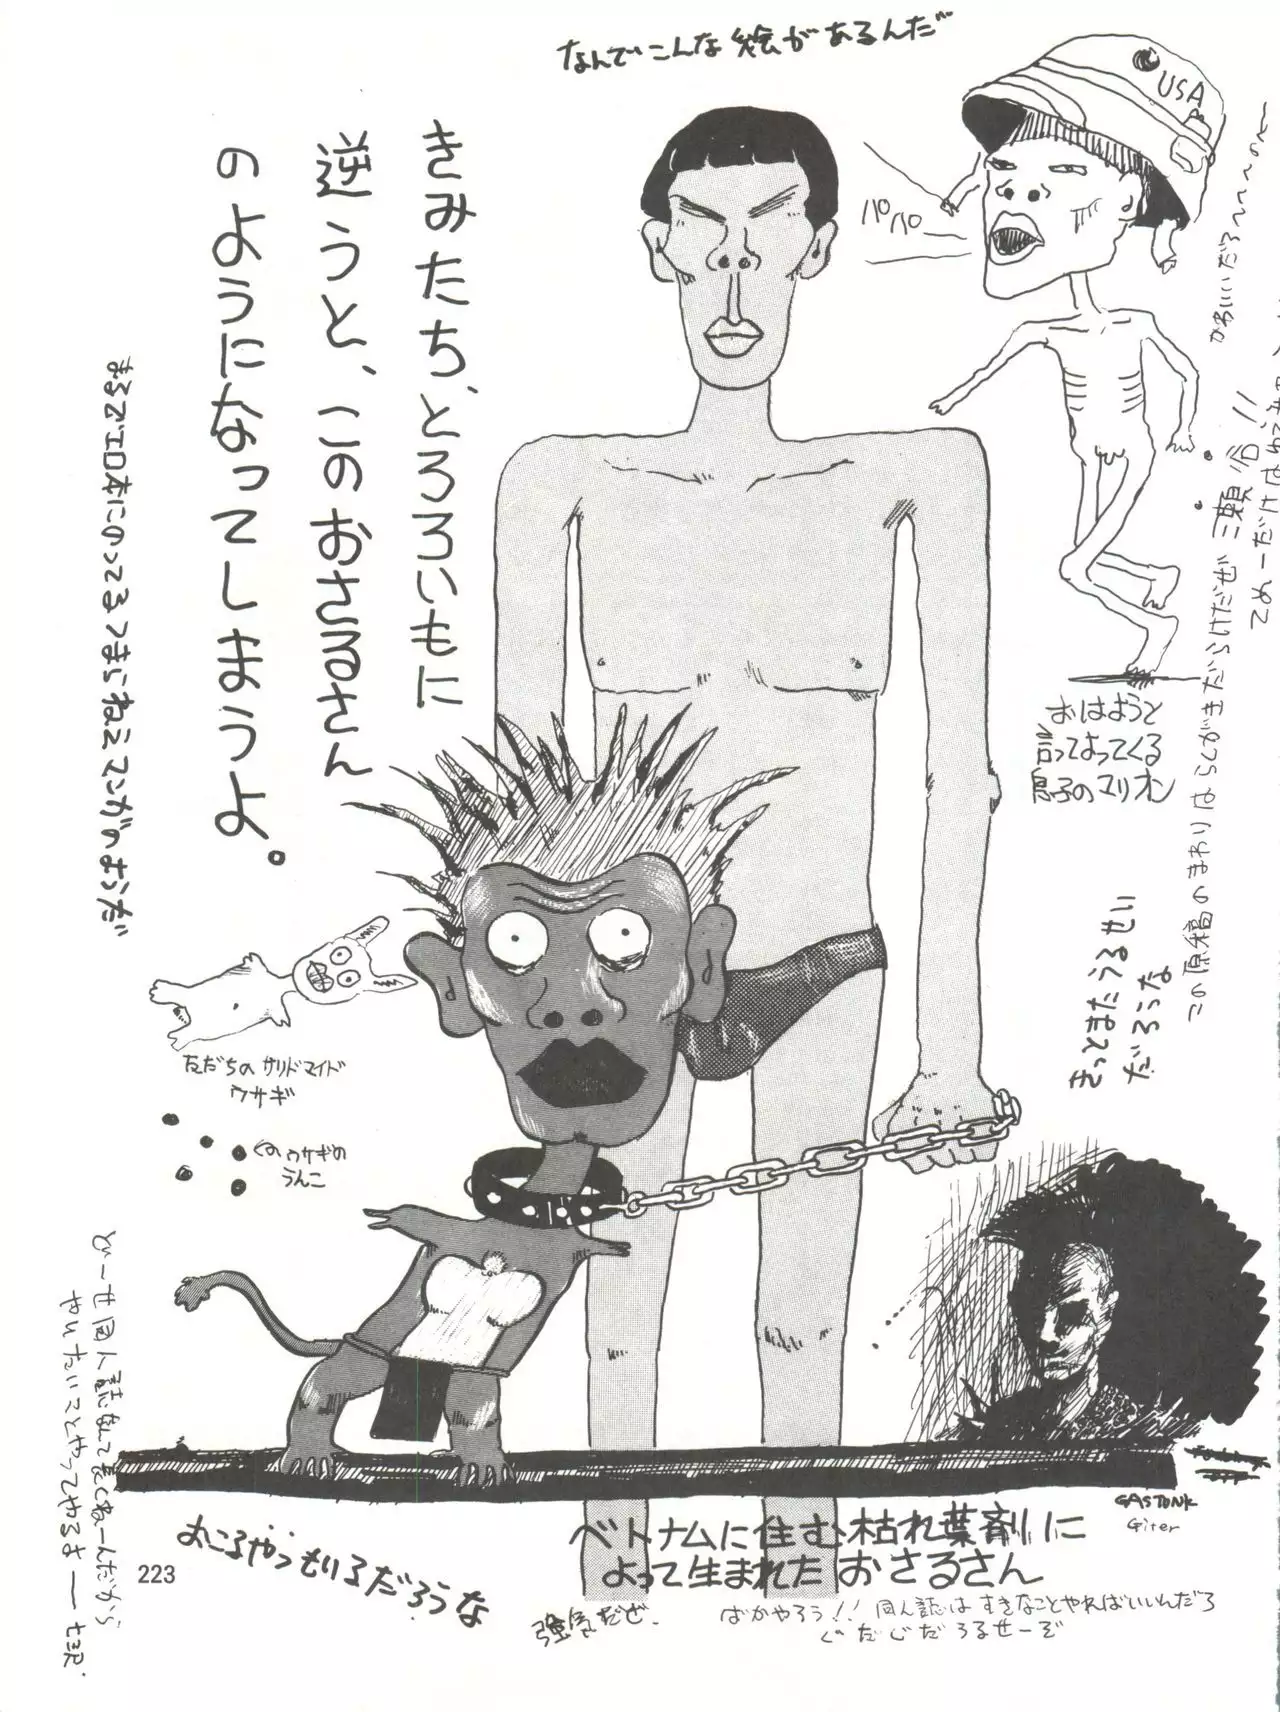 なんでこんな絵があるんだ
USA
パパ
かわいいだろ〜〜〜〜
きみたち、とろろいもに
逆うと、このおさるさん
のようになってしまうよ。
まるでエロ本にのってるつまらねえマンガのようだ
おはようと
言ってよってくる
息子のマリオン
この原稿のまわりはらくがきだらけだぜ
きっとまたうるせい
だろうな
ともだちのサリドマイド
ウサギ
このウサギの
うんこ
どーせ同人誌なんて長くねーんだから
やりたいことやってやるさ——
GASTONK
Giter
ベトナムに住む枯れ葉剤に
よって生まれたおさるさん
おこるやつもいるだろうな
223
強気だぜ.
ばかやろう!!同人誌はすきなことやればいいんだろ
ぐだぐだうるせーぞ